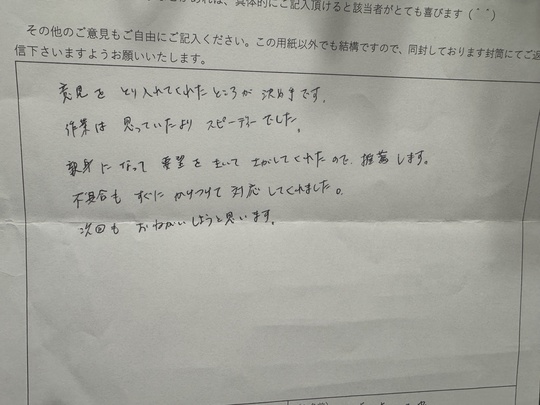 、具体的にご記入頂けると該当者がとても喜びます(^^)
その他のご意見もご自由にご記入ください。この用紙以外でも結構ですので、同封しております封筒にてご返
信下さいますようお願いいたします。
意見を とり入れてくれた ところが 決め手です。
作業は 思っていたより スピーディーでした。
親身になって 要望を きいて さがしてくれたので、推薦します。
不具合も すぐに かけつけて 対応してくれました。
次回も おねがいしようと思います。